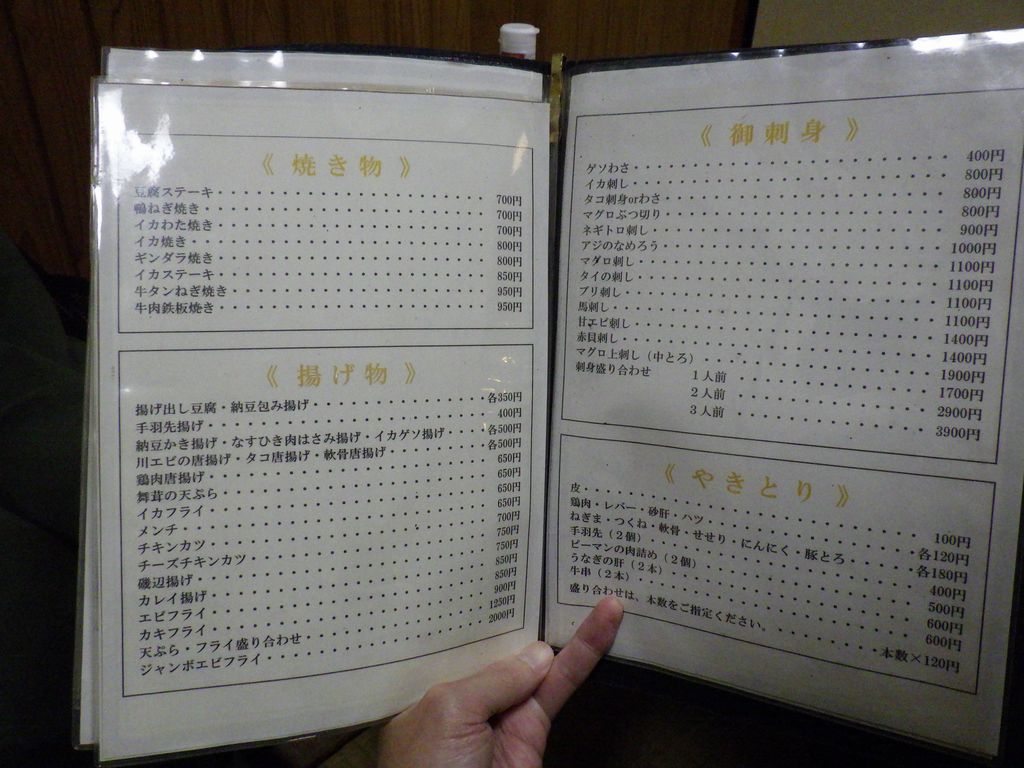 《 焼き物 》
豆腐ステーキ・・・・・・・・700円
鴨ねぎ焼き・・・・・・・・700円
イカわた焼き・・・・・・・・700円
イカ焼き・・・・・・・・800円
ギンダラ焼き・・・・・・・・800円
イカステーキ・・・・・・・・850円
牛タンねぎ焼き・・・・・・・・950円
牛肉鉄板焼き・・・・・・・・950円
《 揚げ物 》
揚げ出し豆腐・納豆包み揚げ・・・・・・・・各350円
手羽先揚げ・・・・・・・・400円
納豆かき揚げ・なすひき肉はさみ揚げ・イカゲソ揚げ・・・・各500円
川エビの唐揚げ・タコ唐揚げ・軟骨唐揚げ・・・・・・各500円
鶏肉唐揚げ・・・・・・・・650円
舞茸の天ぷら・・・・・・・・650円
イカフライ・・・・・・・・650円
メンチ・・・・・・・・650円
チキンカツ・・・・・・・・700円
チーズチキンカツ・・・・・・・・750円
磯辺揚げ・・・・・・・・750円
カレイ揚げ・・・・・・・・850円
エビフライ・・・・・・・・850円
カキフライ・・・・・・・・900円
天ぷら・フライ盛り合わせ・・・・・・・・1250円
ジャンボエビフライ・・・・・・・・2000円
《 御刺身 》
ゲソわさ・・・・・・・・400円
イカ刺し・・・・・・・・800円
タコ刺身orわさ・・・・・・・・800円
マグロぶつ切り・・・・・・・・800円
ネギトロ刺し・・・・・・・・900円
アジのなめろう・・・・・・・・1000円
マグロ刺し・・・・・・・・1100円
タイの刺し・・・・・・・・1100円
ブリ刺し・・・・・・・・1100円
馬刺し・・・・・・・・1100円
甘エビ刺し・・・・・・・・1400円
赤貝刺し・・・・・・・・1400円
マグロ上刺し（中とろ）・・・・・・・・1900円
刺身盛り合わせ 1人前・・・・・・・・1700円
2人前・・・・・・・・2900円
3人前・・・・・・・・3900円
《 やきとり 》
皮・・・・・・・・100円
鶏肉・レバー・砂肝・ハツ・・・・・・・・各120円
ねぎま・つくね・軟骨・せせり・にんにく・豚とろ・・・・各180円
手羽先（2個）・・・・・・・・400円
ピーマンの肉詰め（2個）・・・・・・・・500円
うなぎの肝（2本）・・・・・・・・600円
牛串（2本）・・・・・・・・600円
盛り合わせは、本数をご指定ください。・・・・・・・・本数×120円